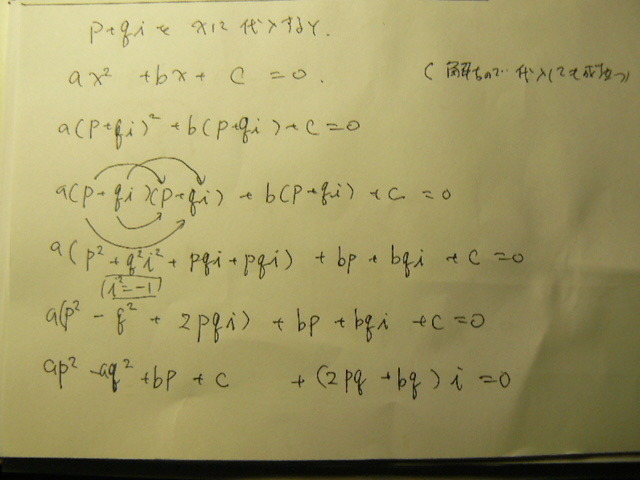 p+qi を xに代入すると、
ax² +bx+ c =0. (解なので代入しても成立つ)
a(p+qi)² +b(p+qi)+c=0
a(p+qi)(p+qi) + b(p+qi) +c =0
a(p²+q²i²+pqi+pqi) +bp+bqi +c=0
(i²=-1)
a(p² -q² + 2pqi) +bp+bqi +c=0
ap² -aq² +bp +c +(2pq +bq) i =0